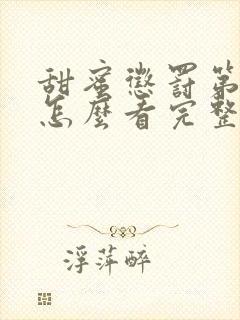 甜蜜懲罰第
怎麼看完整
浮萍醉